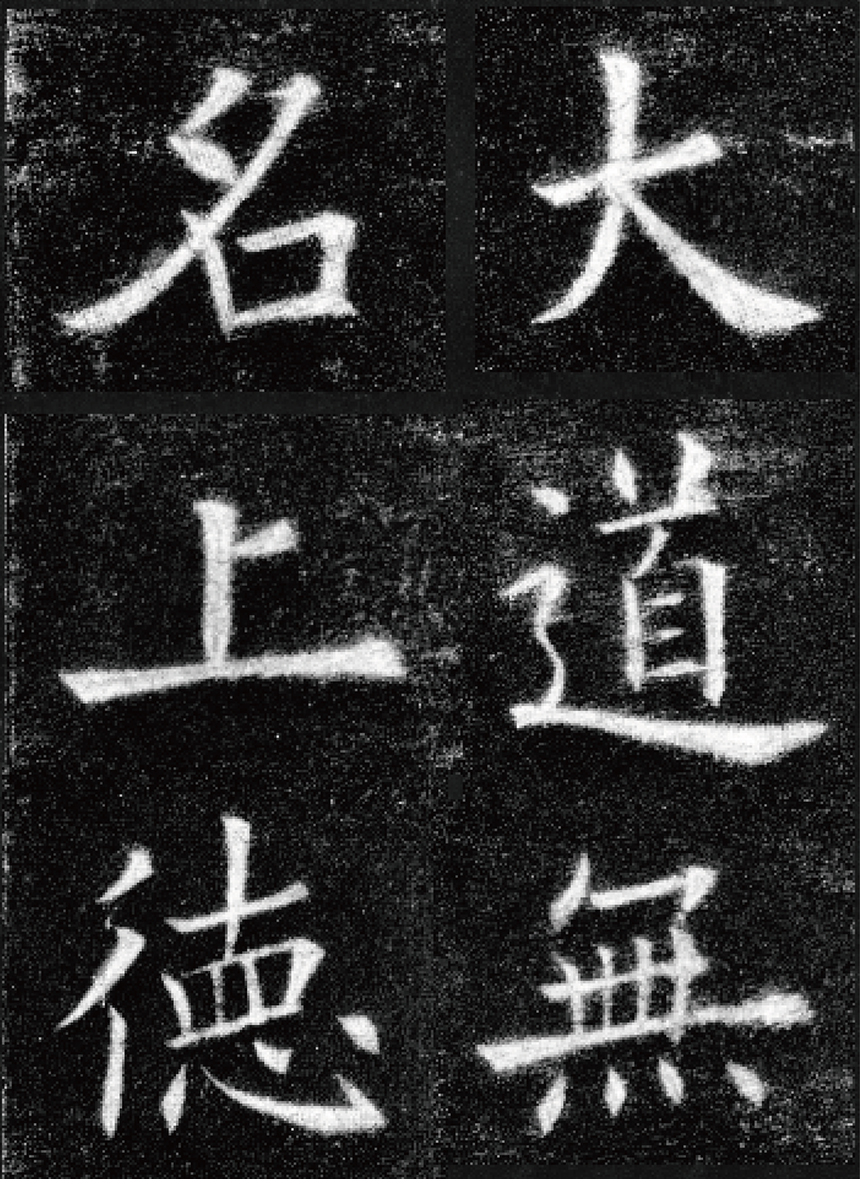 大道無
名上徳